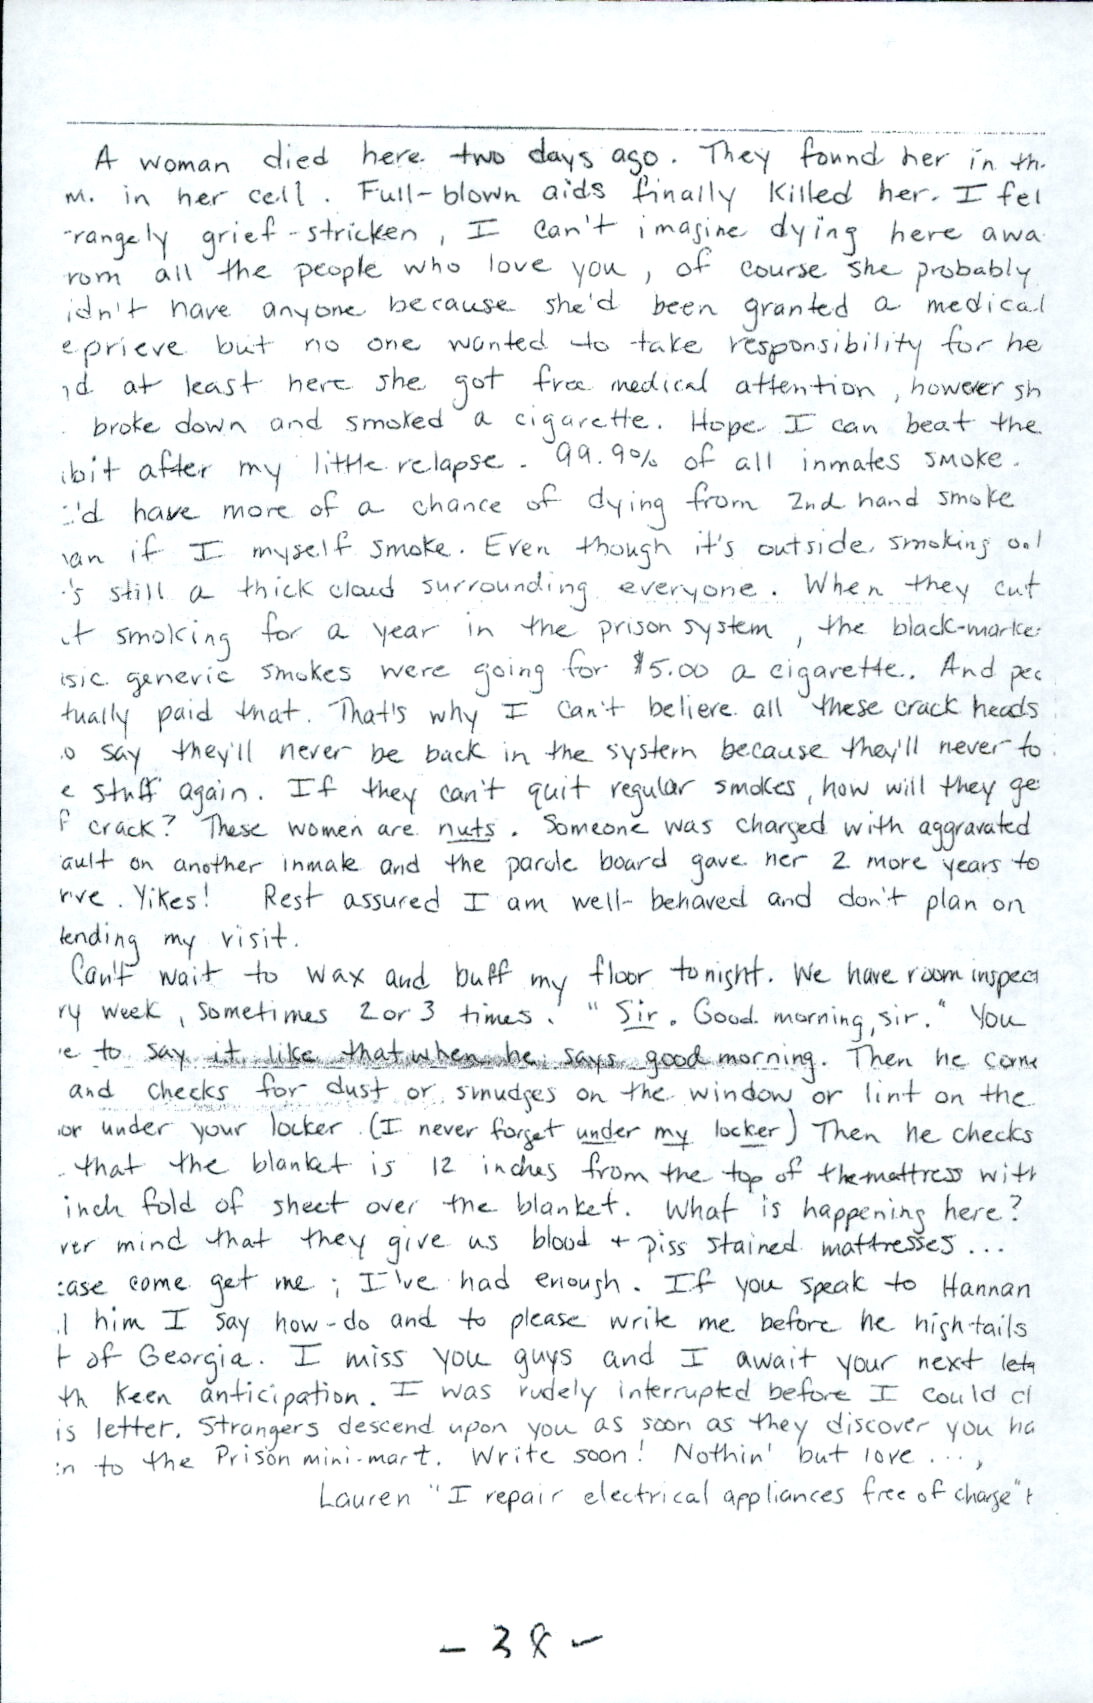 A woman died here two days ago. They found her in th
m. in her cell. Full-blown aids finally killed her. I fel
rangely grief-stricken, I can't imagine dying here awa
rom all the people who love you, of course she probably
idn't have anyone because she'd been granted a medical
eprieve but no one wanted to take responsibility for he
nd at least here she got free medical attention, however sh
broke down and smoked a cigarette. Hope I can beat the
ibit after my little relapse. 99.9% of all inmates smoke.
'd have more of a chance of dying from 2nd hand smoke
an if I myself smoke. Even though it's outside smoking onl
's still a thick cloud surrounding everyone. When they cut
t smoking for a year in the prison system, the black-marke
sic generic smokes were going for $5.00 a cigarette. And peo
tually paid that. That's why I can't believe all these crack heads
o say they'll never be back in the system because they'll never to
e stuff again. If they can't quit regular smokes, how will they ge
f crack? These women are nuts. Someone was charged with aggravated
ault on another inmate and the parole board gave her 2 more years to
rve. Yikes! Rest assured I am well-behaved and don't plan on
tending my visit.
Can't wait to wax and buff my floor tonight. We have room inspect
ry week, sometimes 2 or 3 times. "Sir. Good morning, sir." You
e to say it like that when he says good morning. Then he come
and checks for dust or smudges on the window or lint on the
or under your locker. (I never forget under my locker) Then he checks
that the blanket is 12 inches from the top of the mattress with
inch fold of sheet over the blanket. What is happening here?
ver mind that they give us blood + piss stained mattresses...
ease come get me; I've had enough. If you speak to Hannan
l him I say how-do and to please write me before he hightails
t of Georgia. I miss you guys and I await your next lett
th keen anticipation. I was rudely interrupted before I could cl
is letter. Strangers descend upon you as soon as they discover you ha
n to the Prison mini-mart. Write soon! Nothin' but love ...,
Lauren "I repair electrical appliances free of charge" t
- 38 -